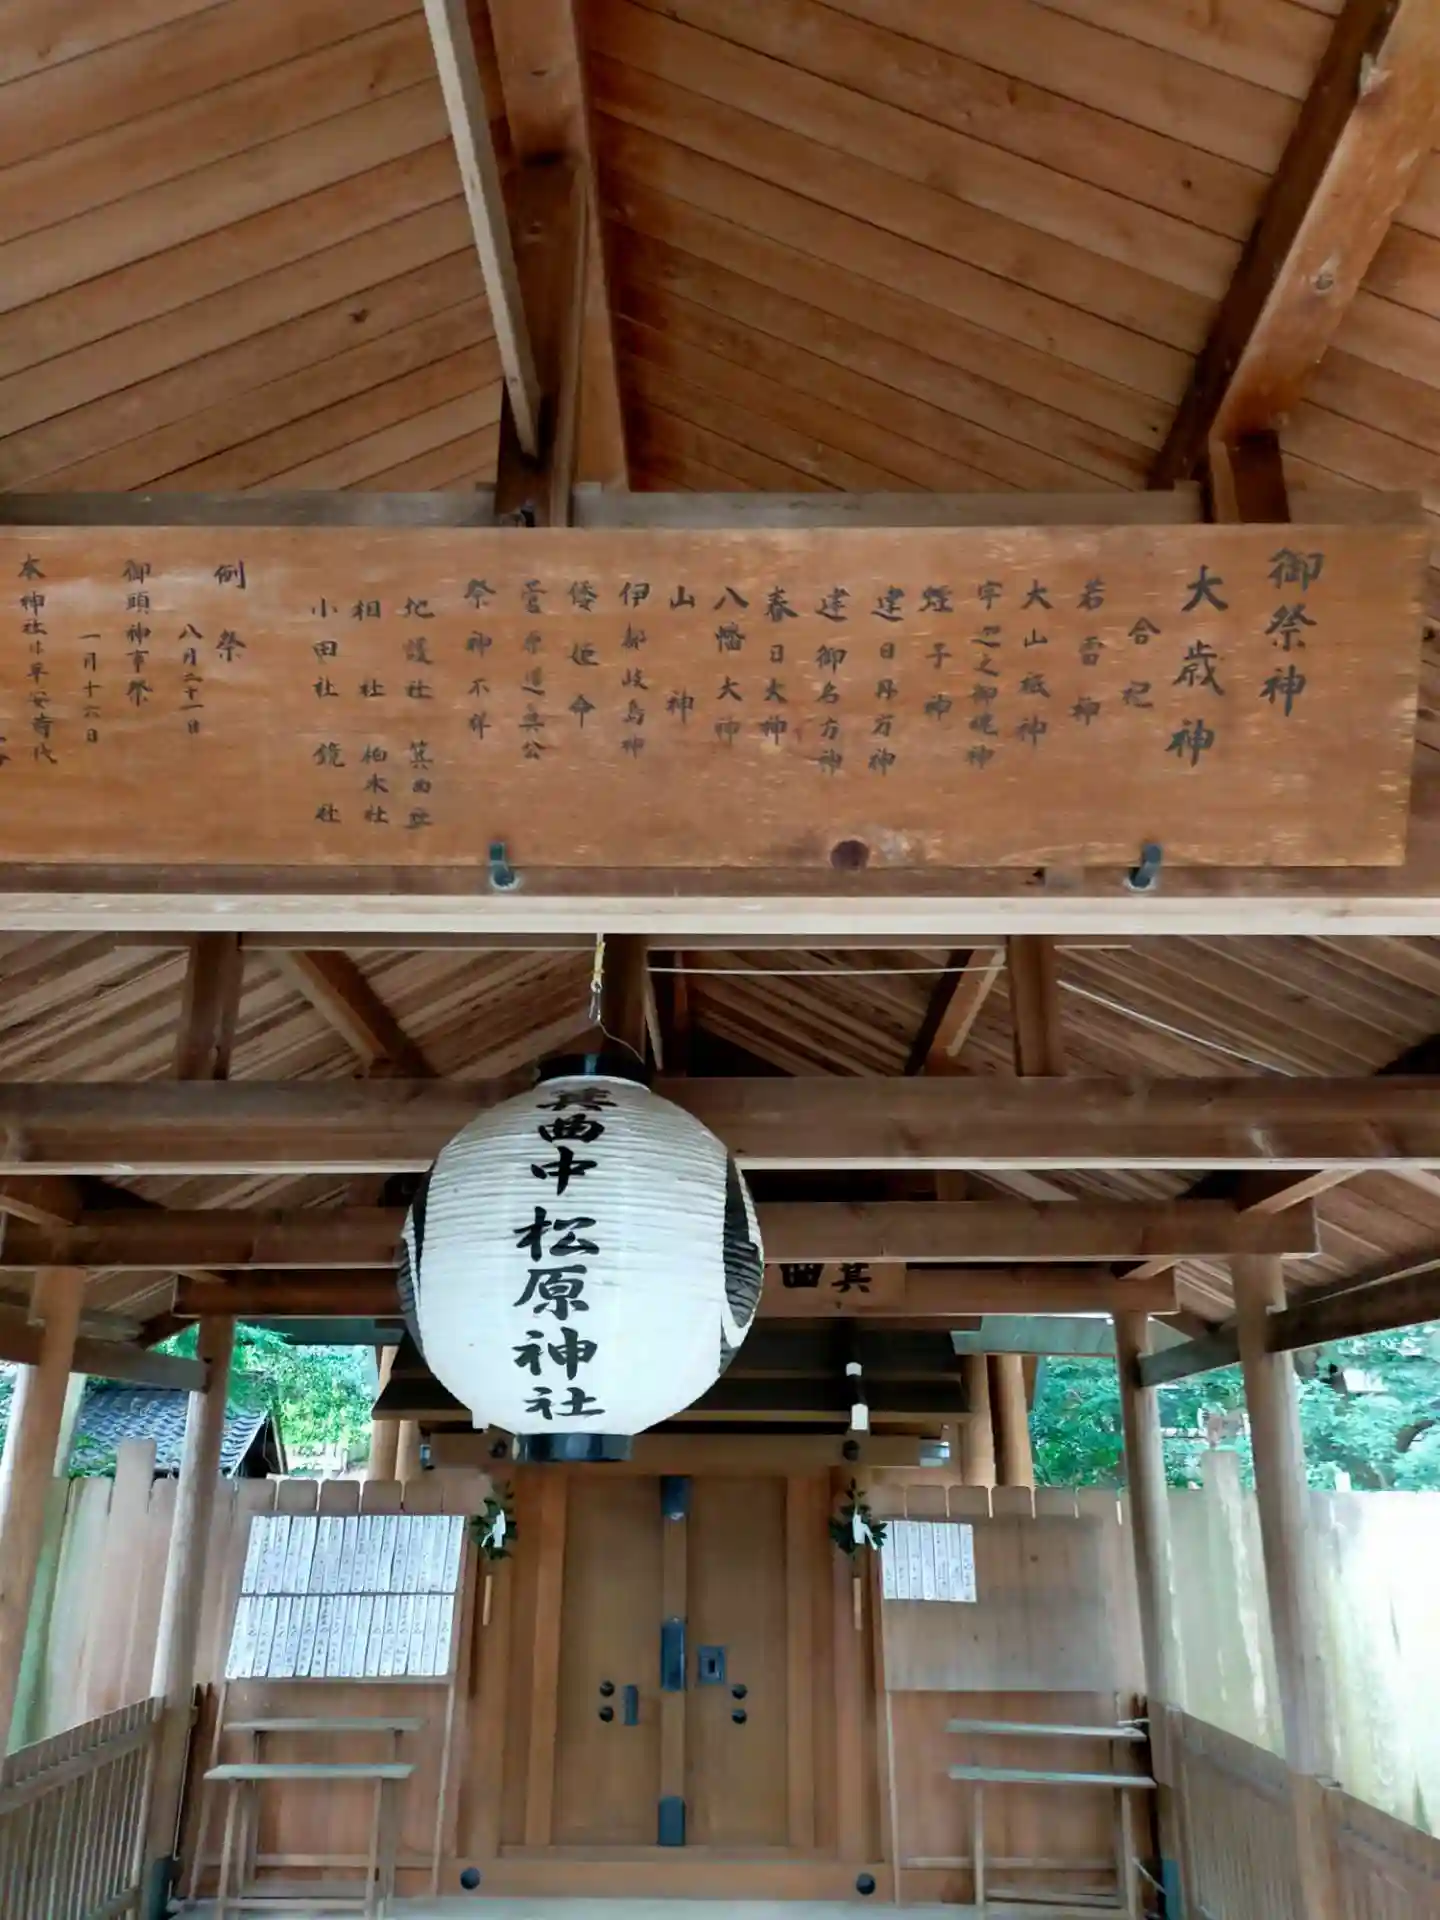 御祭神
大歳神
合祀
若雷神
大山祇神
宇迦之御魂神
煙子神
建日丹方神
建御名方神
春日大神
八幡大神
山神
伊都岐島神
倭姫命
菅原道真公
祭神不祥
地護社 箕曲社
相社 柏木社
小田社 鏡社
例祭
八月二十一日
御頭神事祭
一月十六日
本神社は平安時代
箕曲中松原神社
箕曲